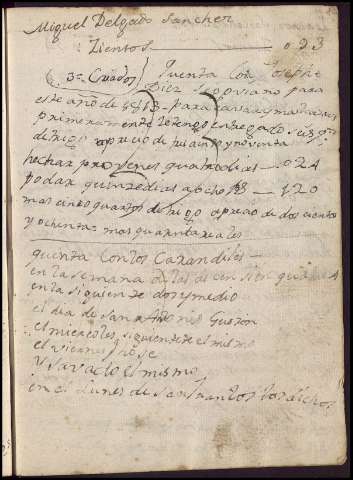 Miguel Delgado Sanchez
Zientos 023
3 Criados Quenta Con Josephe
Diez Segoviano para
este año de para
primeramente le tengo entregado seis
de trigo a precio de y noventa
hechar provenes quatro dias 024
podar quince dias a ocho Rs 120
mas cinco quartos de trigo a precio de dos cientos
y ochenta mas quarenta reales
quenta Con los Cazandiles
en la semana de las
en la siguiente dos y medio
el dia de San Antonio Gueron
el miercoles siguiente el mismo
el viernes Jose
y Savado el mismo
en el Lunes de San Juan los dos dichos